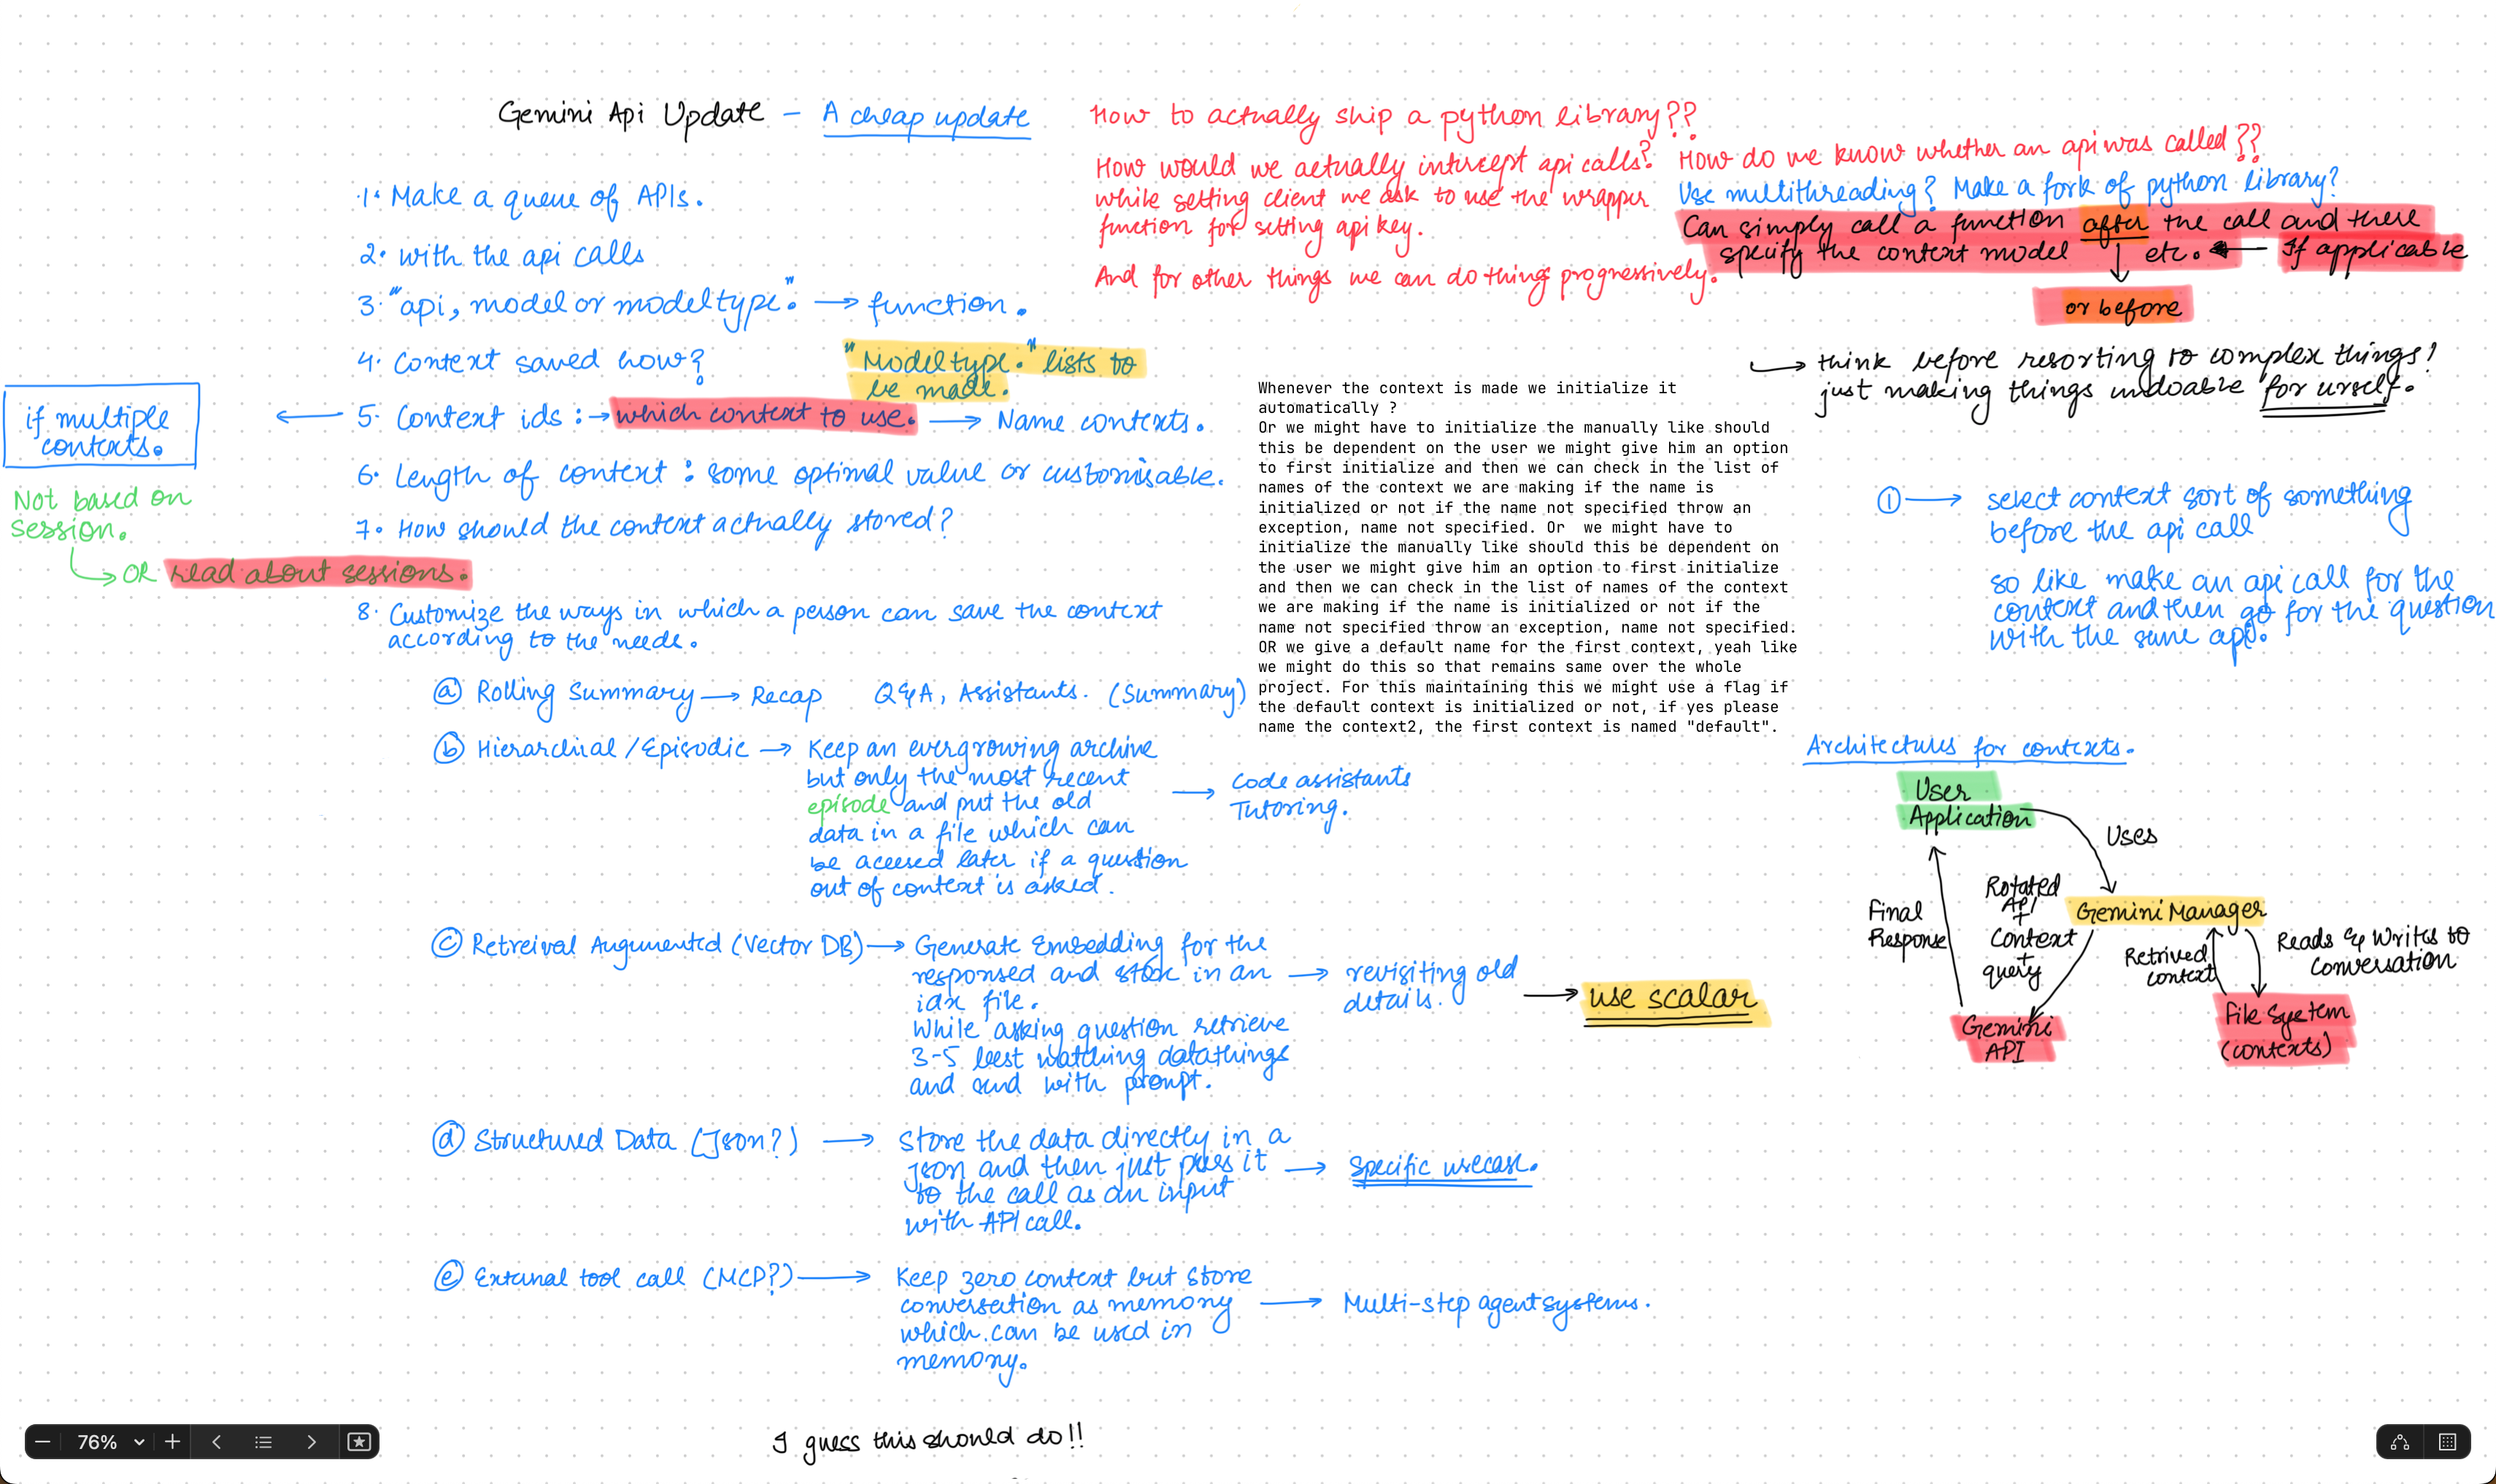 Gemini Api Update - A cheap update
1. Make a queue of APIs.
2. with the api calls
3. "api, model or modeltype." → function.
4. Context saved how?
"Modeltype." lists to
be made.
5. Context ids :→ which context to use. → Name contexts.
if multiple
contexts.
6. Length of context : some optimal value or customisable.
Not based on
session.
↳ OR read about sessions.
7. How should the context actually stored?
8. Customize the ways in which a person can save the context
according to the needs.
ⓐ Rolling Summary → Recap Q&A, Assistants. (Summary)
ⓑ Hierarchial / Episodic → Keep an evergrowing archive
but only the most recent
episode and put the old
data in a file which can
be accesed later if a question
out of context is asked.
→ Code assistants
Tutoring.
ⓒ Retreival Augumented (Vector DB) → Generate Embedding for the
responsed and store in an
idx file.
While asking question retrieve
3-5 best matching datathings
and send with prompt.
→ revisiting old
details.
→ use scalar
ⓓ Structured Data (Json?) → Store the data directly in a
json and then just pass it
to the call as an input
with API call.
→ Specific usecase.
ⓔ External tool call (MCP?) → Keep zero context but store
conversation as memory
which can be used in
memory.
→ Multi-step agent systems.
I guess this should do!!
How to actually ship a python library??
How would we actually intercept api calls?
while setting client we ask to use the wrapper
function for setting api key.
And for other things we can do things progressively.
How do we know whether an api was called??
Use multithreading? Make a fork of python library?
Can simply call a function after the call and there
specify the context model etc. ← If applicable
or before
↳ think before resorting to complex things!
just making things undoable for urself.
Whenever the context is made we initialize it
automatically ?
Or we might have to initialize the manually like should
this be dependent on the user we might give him an option
to first initialize and then we can check in the list of
names of the context we are making if the name is
initialized or not if the name not specified throw an
exception, name not specified. Or  we might have to
initialize the manually like should this be dependent on
the user we might give him an option to first initialize
and then we can check in the list of names of the context
we are making if the name is initialized or not if the
name not specified throw an exception, name not specified.
OR we give a default name for the first context, yeah like
we might do this so that remains same over the whole
project. For this maintaining this we might use a flag if
the default context is initialized or not, if yes please
name the context2, the first context is named "default".
① → select context sort of something
before the api call
so like make an api call for the
context and then go for the question
with the same api.
Architectures for contexts.
User
Application
Uses
Gemini Manager
Rotated
API
+
Context
+
query
Final
Response
Retrived
context
Reads & Writes to
Conversation
Gemini
API
File System
(contexts)
76%